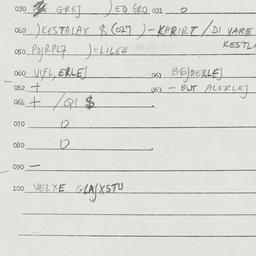 030 GREJ ) EO GRO 031 O
040 ) KESTALAX & (027) - KARIRT / DI VARE
KESTLA
050 POJRPL7 ) = LILEH
060 VIFL, ERLEJ 061 BEJDERLEJ
062 + 063 - BUT ALERLEJ
064 + / QI $
070 O
080 O
090 -
100 VELXE GLAJXSTU